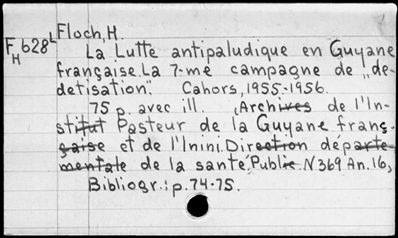 Floch, H.
F628L
H
La Lutte antipaludique en Guyane
française. La 7-me campagne de „de-
detisation". Cahors, 1955-1956.
75 p. avec ill. (Archives de l'In-
stitut Pasteur de la Guyane franç-
gaise et de l'Inini. Direction départe-
mentale de la santé. Public. N369 An. 16,
Bibliogr.: p. 74-75.